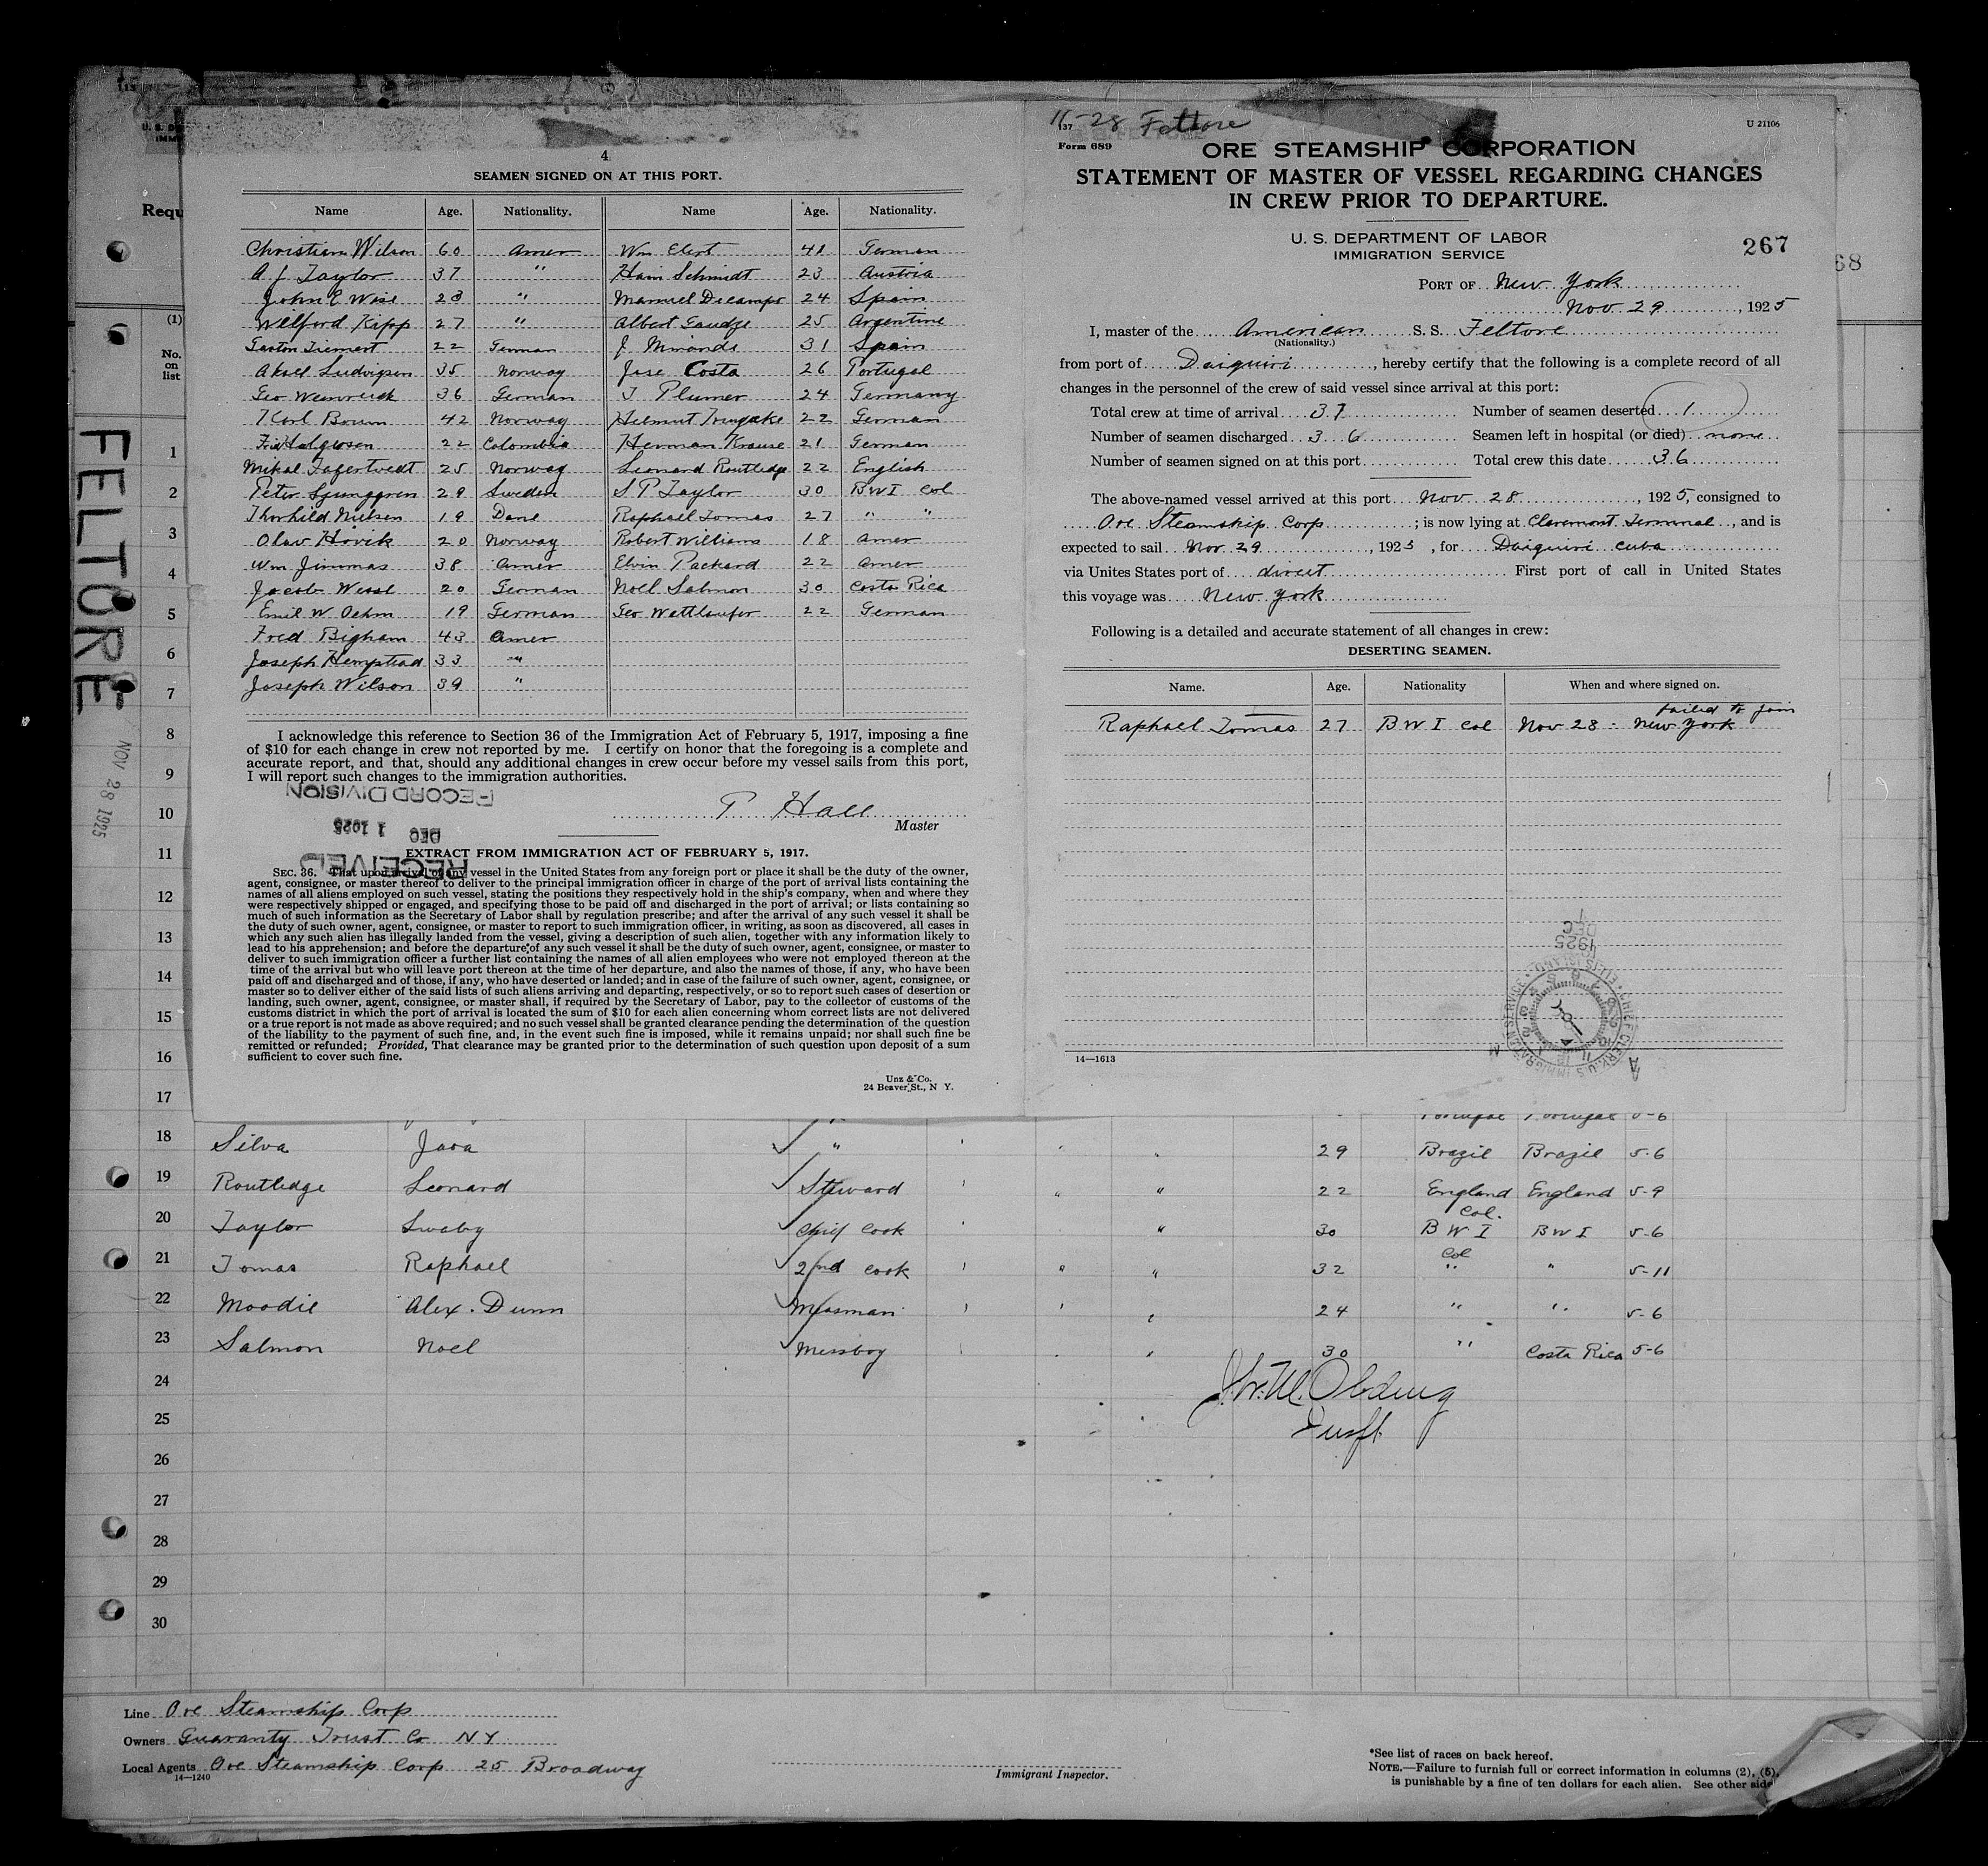 4
SEAMEN SIGNED ON AT THIS PORT.
Name Age. Nationality. Name Age. Nationality.
Christian Wilson 60 Amer Wm Elert 41 German
A J Taylor 37 " Hain Schmidt 23 Austria
John E Wise 28 " Manuel Decampo 24 Spain
Wilford Kipp 27 " Albert Gaudze 25 Argentine
22 German J Miranda 31 Spain
Aksel Ludvigsen 35 Norway Jose Costa 26 Portugal
Geo 36 German J Plumer 24 Germany
Karl 42 Norway Helmut 22 German
22 Colombia Herman Krause 21 German
Mikal 25 Norway Leonard Routledge 22 English
Peter Ljunggren 29 Sweden S P Taylor 30 BWI Col
Thorhild Nielsen 19 Dane Raphael Tomas 27 " "
Olav Hovik 20 Norway Robert Williams 18 Amer
Wm Jimmas 38 Amer Elvin Packard 22 Amer
Jacob Wessl 20 German Noel Salmon 30 Costa Rica
Emil W. Oehm 19 German Geo Wattlaufer 22 German
Fred Bigham 43 Amer
Joseph Hempstead 33 "
Joseph Wilson 39 "
I acknowledge this reference to Section 36 of the Immigration Act of February 5, 1917, imposing a fine
of $10 for each change in crew not reported by me. I certify on honor that the foregoing is a complete and
accurate report, and that, should any additional changes in crew occur before my vessel sails from this port,
I will report such changes to the immigration authorities.
RECORD DIVISION
DEC 1 1925
RECEIVED
T Hall
Master
EXTRACT FROM IMMIGRATION ACT OF FEBRUARY 5, 1917.
SEC. 36. That upon arrival of any vessel in the United States from any foreign port or place it shall be the duty of the owner,
agent, consignee, or master thereof to deliver to the principal immigration officer in charge of the port of arrival lists containing the
names of all aliens employed on such vessel, stating the positions they respectively hold in the ship's company, when and where they
were respectively shipped or engaged, and specifying those to be paid off and discharged in the port of arrival; or lists containing so
much of such information as the Secretary of Labor shall by regulation prescribe; and after the arrival of any such vessel it shall be
the duty of such owner, agent, consignee, or master to report to such immigration officer, in writing, as soon as discovered, all cases in
which any such alien has illegally landed from the vessel, giving a description of such alien, together with any information likely to
lead to his apprehension; and before the departure of any such vessel it shall be the duty of such owner, agent, consignee, or master to
deliver to such immigration officer a further list containing the names of all alien employees who were not employed thereon at the
time of the arrival but who will leave port thereon at the time of her departure, and also the names of those, if any, who have been
paid off and discharged and of those, if any, who have deserted or landed; and in case of the failure of such owner, agent, consignee, or
master so to deliver either of the said lists of such aliens arriving and departing, respectively, or so to report such cases of desertion or
landing, such owner, agent, consignee, or master shall, if required by the Secretary of Labor, pay to the collector of customs of the
customs district in which the port of arrival is located the sum of $10 for each alien concerning whom correct lists are not delivered
or a true report is not made as above required; and no such vessel shall be granted clearance pending the determination of the question
of the liability to the payment of such fine, and, in the event such fine is imposed, while it remains unpaid; nor shall such fine be
remitted or refunded; Provided, That clearance may be granted prior to the determination of such question upon deposit of a sum
sufficient to cover such fine.
Unz & Co.
24 Beaver St., N Y.
11-28 Feltore
137
U 21106
Form 689
ORE STEAMSHIP CORPORATION
STATEMENT OF MASTER OF VESSEL REGARDING CHANGES
IN CREW PRIOR TO DEPARTURE.
U. S. DEPARTMENT OF LABOR
IMMIGRATION SERVICE
267
PORT OF New York
Nov 29, 1925
I, master of the American S. S. Feltore
(Nationality.)
from port of Daiquiri, hereby certify that the following is a complete record of all
changes in the personnel of the crew of said vessel since arrival at this port:
Total crew at time of arrival 37 Number of seamen deserted 1
Number of seamen discharged 36 Seamen left in hospital (or died) none
Number of seamen signed on at this port Total crew this date 36
The above-named vessel arrived at this port Nov 28, 1925, consigned to
Ore Steamship Corp; is now lying at Claremont Terminal, and is
expected to sail Nov 29, 1925, for Daiquiri Cuba
via Unites States port of direct First port of call in United States
this voyage was New York
Following is a detailed and accurate statement of all changes in crew:
DESERTING SEAMEN.
Name. Age. Nationality When and where signed on.
failed to join
Raphael Tomas 27 B W I Col Nov 28 - New York
14—1613
DEC 1
1925
CHIEF CLERK, U.S. IMMIGRATION SERVICE · ELLIS ISLAND
A M
68
115
U. S. D
IMM
Requ
(1)
No.
on
list
FELTORE
NOV 28 1925
1
2
3
4
5
6
7
8
9
10
11
12
13
14
15
16
17
Portugal Portugal 5-6
18 Silva Jara " 29 Brazil Brazil 5-6
19 Routledge Leonard Steward " " 22 England England 5-9
20 Taylor Swaby Chief Cook " 30 Col. B W I B W I 5-6
21 Tomas Raphael 2nd Cook " " 32 Col " " 5-11
22 Moodie Alex. Dunn Messman 24 " " 5-6
23 Salmon Noel Messboy 30 " Costa Rica 5-6
24
25
26
27
28
29
30
Line Ore Steamship Corp
Owners Guaranty Trust Co N Y
Local Agents Ore Steamship Corp 25 Broadway
14—1240
Immigrant Inspector.
*See list of races on back hereof.
NOTE.—Failure to furnish full or correct information in columns (2), (5),
is punishable by a fine of ten dollars for each alien. See other side